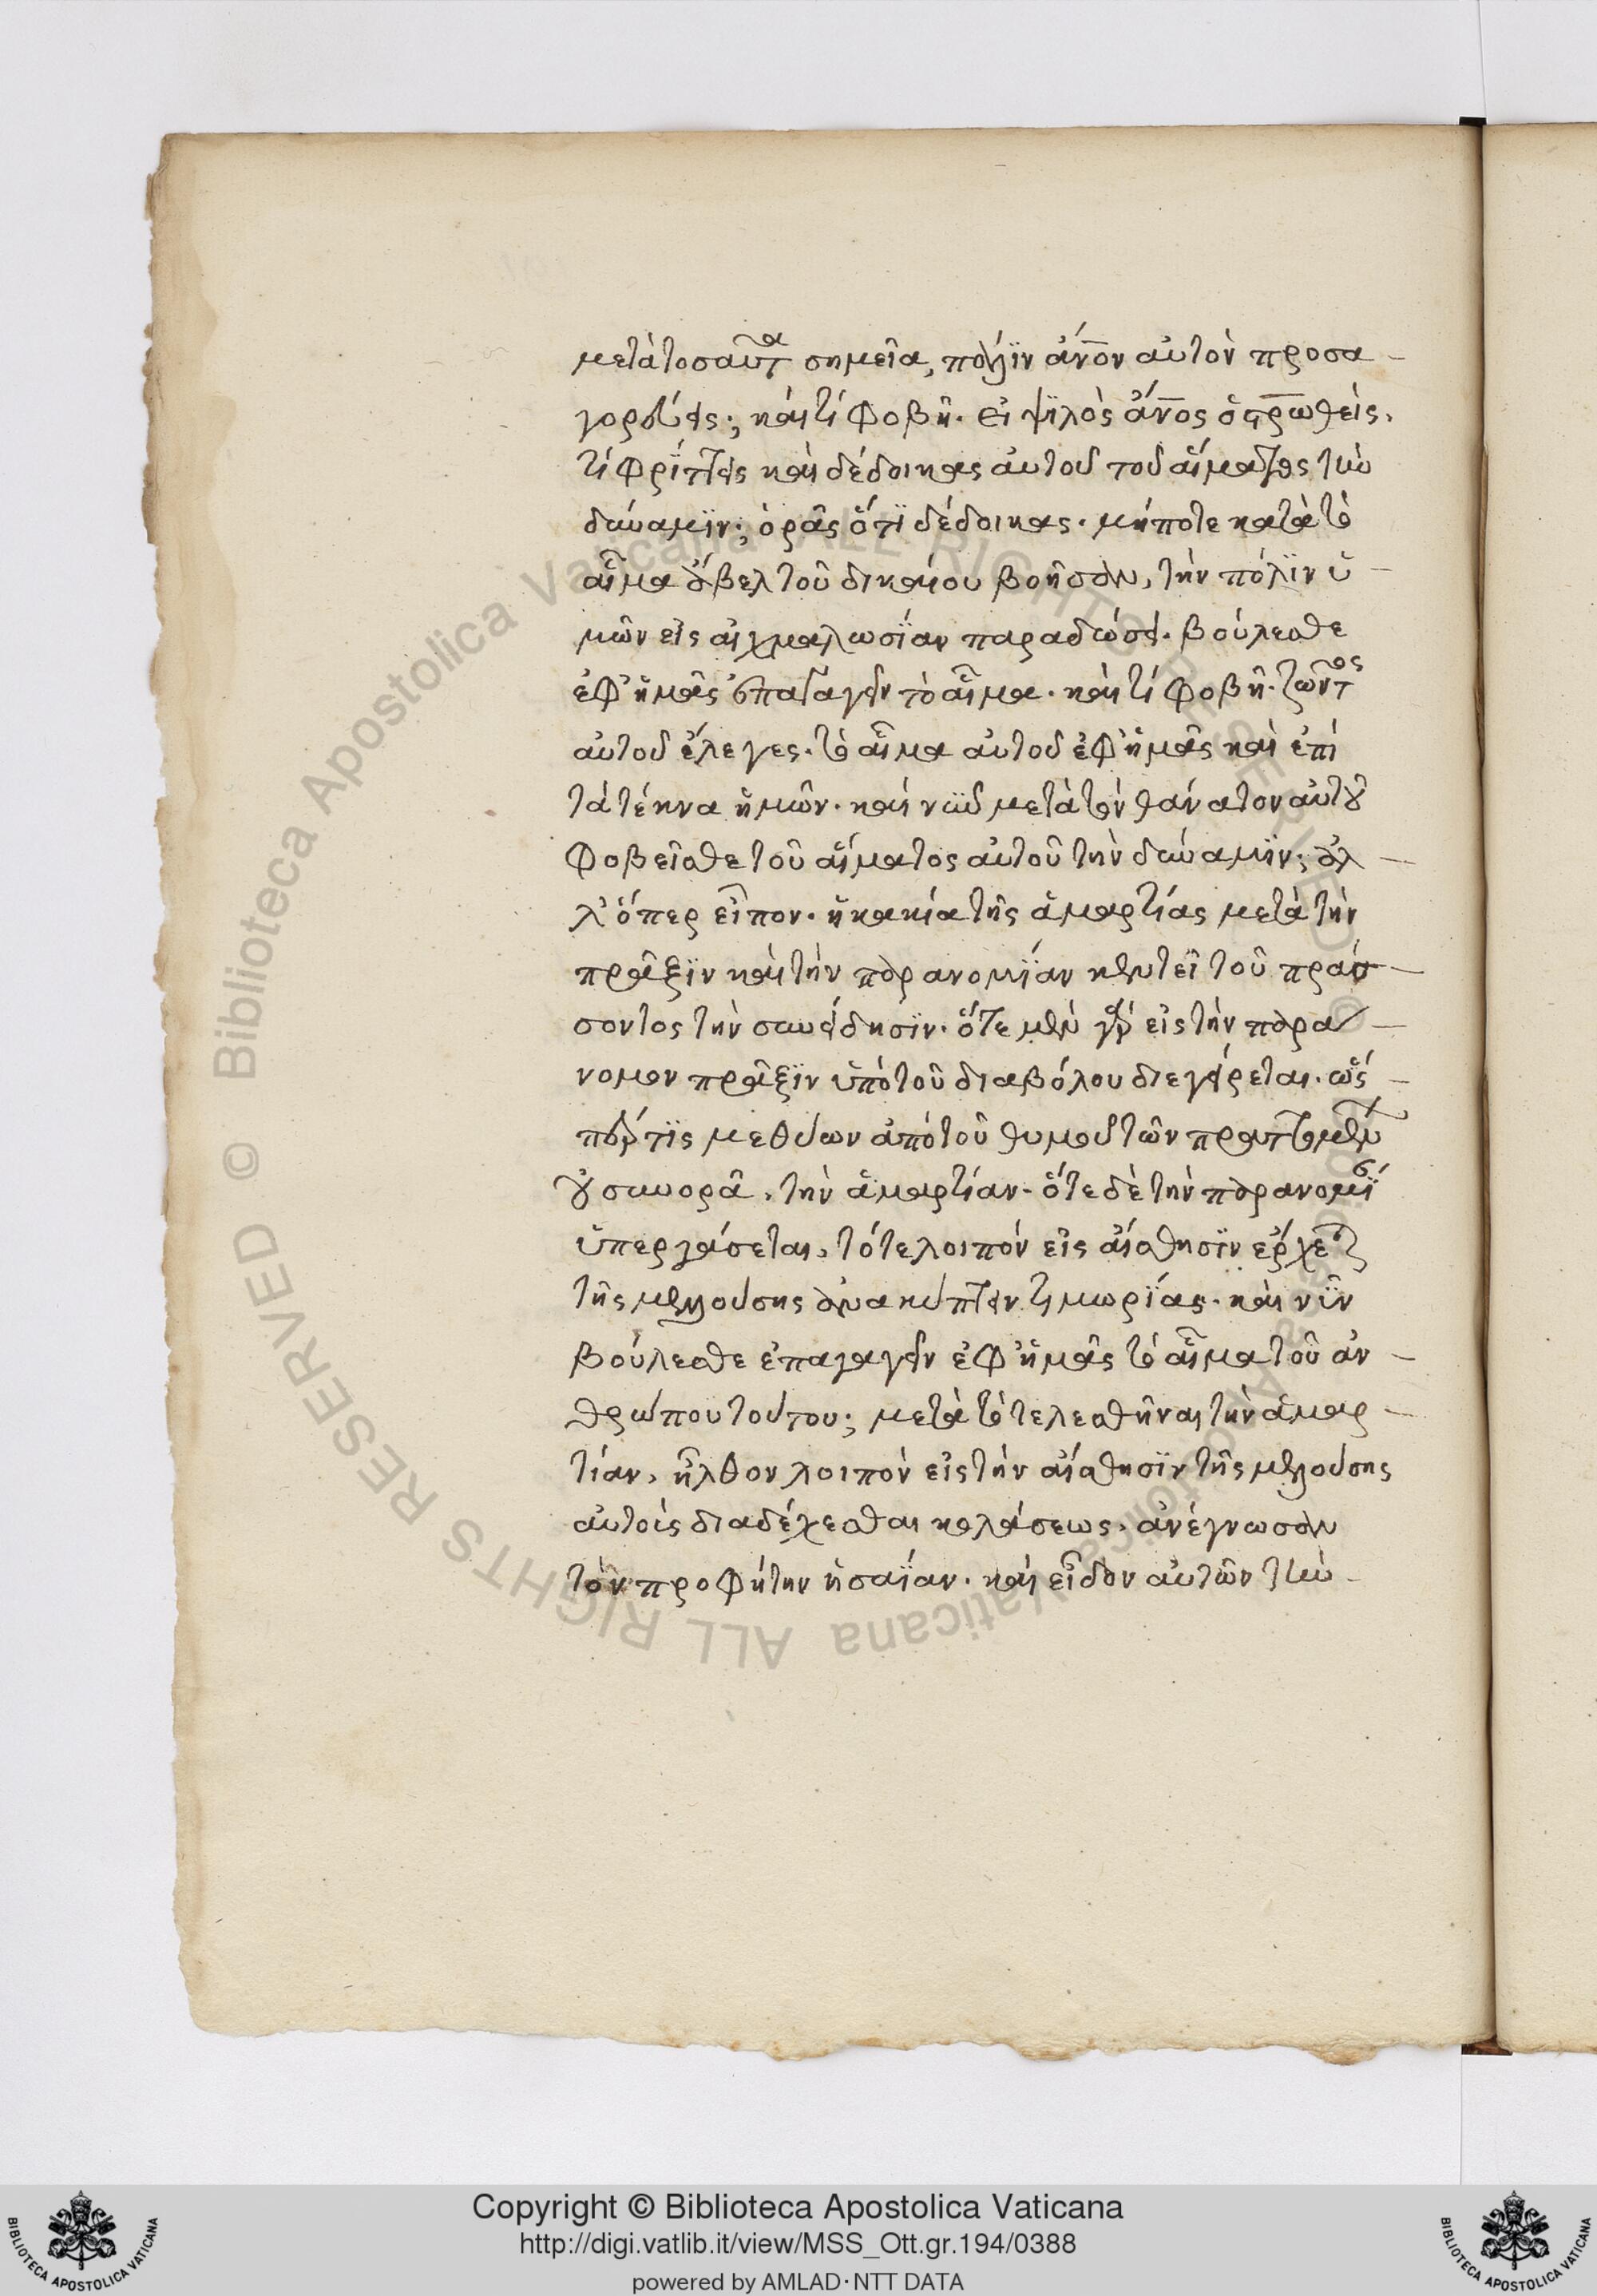 μετὰ τοσαῦτα σημεῖα, πάλϊν ἄν̅ον αὐτὸν προσα-
γορεύεις; καὶ τί φοβῆ. εἰ ψϊλὸς ἄν̅ος ὁ στ̅ρωθείς.
τί φρίττεις καὶ δέδοικας αὐτοῦ τοῦ αἵματος τὴν
δύναμϊν; ὁρᾶς ὅτϊ δέδοικας. μήποτε κατὰ τὸ
αἷμα ἄβελ τοῦ δικαίου βοῆσαν, τὴν πόλϊν ὑ-
μῶν εἰς αἰχμαλωσΐαν παραδώσει. βούλεσθε
ἐφ' ἡμᾶς ἐπαγαγεῖν τὸ αἷμα. καὶ τί φοβῆ. ζῶντος
αὐτοῦ ἔλεγες. τὸ αἷμα αὐτοῦ ἐφ' ἡμᾶς καὶ ἐπὶ
τὰ τέκνα ἡμῶν. καὶ νῦν μετὰ τὸν θάνατον αὐτοῦ
φοβεῖσθε τοῦ αἵματος αὐτοῦ τὴν δύναμϊν; ἀλ-
λ' ὅπερ εἶπον. ἡ κακία τῆς ἁμαρτίας μετὰ τὴν
πρᾶξϊν καὶ τὴν παρανομΐαν κεντεῖ τοῦ πράσ-
σοντος τὴν συνείδησϊν. ὅτε μὲν γὰρ εἰς τὴν παρα-
νομον πρᾶξϊν ὑπὸ τοῦ διαβόλου διεγείρεται. ὥσ-
πέρ τϊς μεθύων ἀπὸ τοῦ θυμοῦ τῶν πραττομένων
οὐ συνορᾶ, τὴν ἁμαρτίαν. ὅτε δὲ τὴν παρανομΐ
ὑπεργάσεται, τότε λοιπόν εἰς αἴσθησϊν ἔρχεται
τῆς μελλούσης ἀνακύπτειν τιμωρΐας. καὶ νῦν
βούλεσθε ἐπαγαγεῖν ἐφ' ἡμᾶς τὸ αἷμα τοῦ ἀν-
θρώπου τούτου; μετὰ τὸ τελεσθῆναι τὴν ἁμαρ-
τίαν, ἦλθον λοιπὸν εἰς τὴν αἴσθησϊν τῆς μελλούσης
αὐτοὶς διαδέχεσθαι κολάσεως. ἀνέγνωσαν
τὸν προφήτην ἡσαΐαν. καὶ εἶδον αὐτῶν τὴν-
Copyright © Biblioteca Apostolica Vaticana
http://digi.vatlib.it/view/MSS_Ott.gr.194/0388
powered by AMLAD·NTT DATA